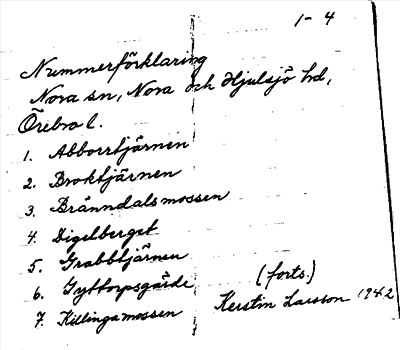 1-4
Nummerförklaring
Nora sn, Nora och Hjulsjö hd,
Örebro l.
1. Abborrtjärnen
2. Broktjärnen
3. Bränndalsmossen
4. Digelberget
5. Grabbtjärnen
6. Gyttorpsgärde
7. Killingamossen
(forts.)
Kerstin Larsson 1942